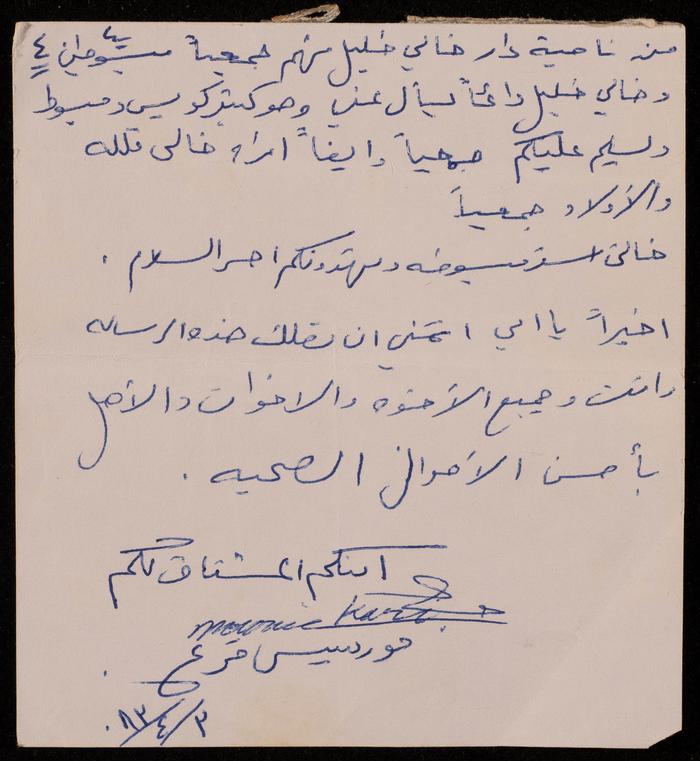 من ناحية دار خالي خليل منهم جمعياً مبسوطين ٤
وخالي خليل دائماً بسأل عني وهو كثير كويس ومبسوط
وبسلم عليكم جمعياً وايضاً امرأة خالي
والأولاد جمعياً
خالتي مبسوطه ويهدونكم احر السلام .
اخيراً يا امي اتمنى ان تصلك هذه الرساله
وانت وجميع الأخوه والاخوات والأهل
بأحسن الأحوال الصحيه .
ابنكم المشتاق لكم
موريس فرع
٨٣/٤/٣ .